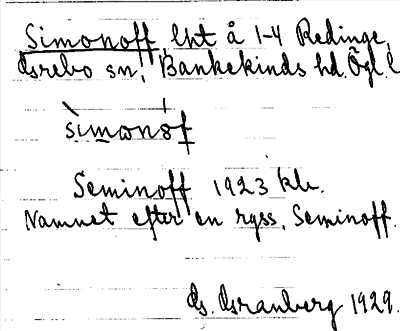 Simonoff, lht å 1-4 Redinge,
Örebo sn, Bankekinds hd. Ögl. l
sìmωnóf
Seminoff 1923 kbr.
Namnet efter en ryss, Seminoff.
G. Granberg 1929.